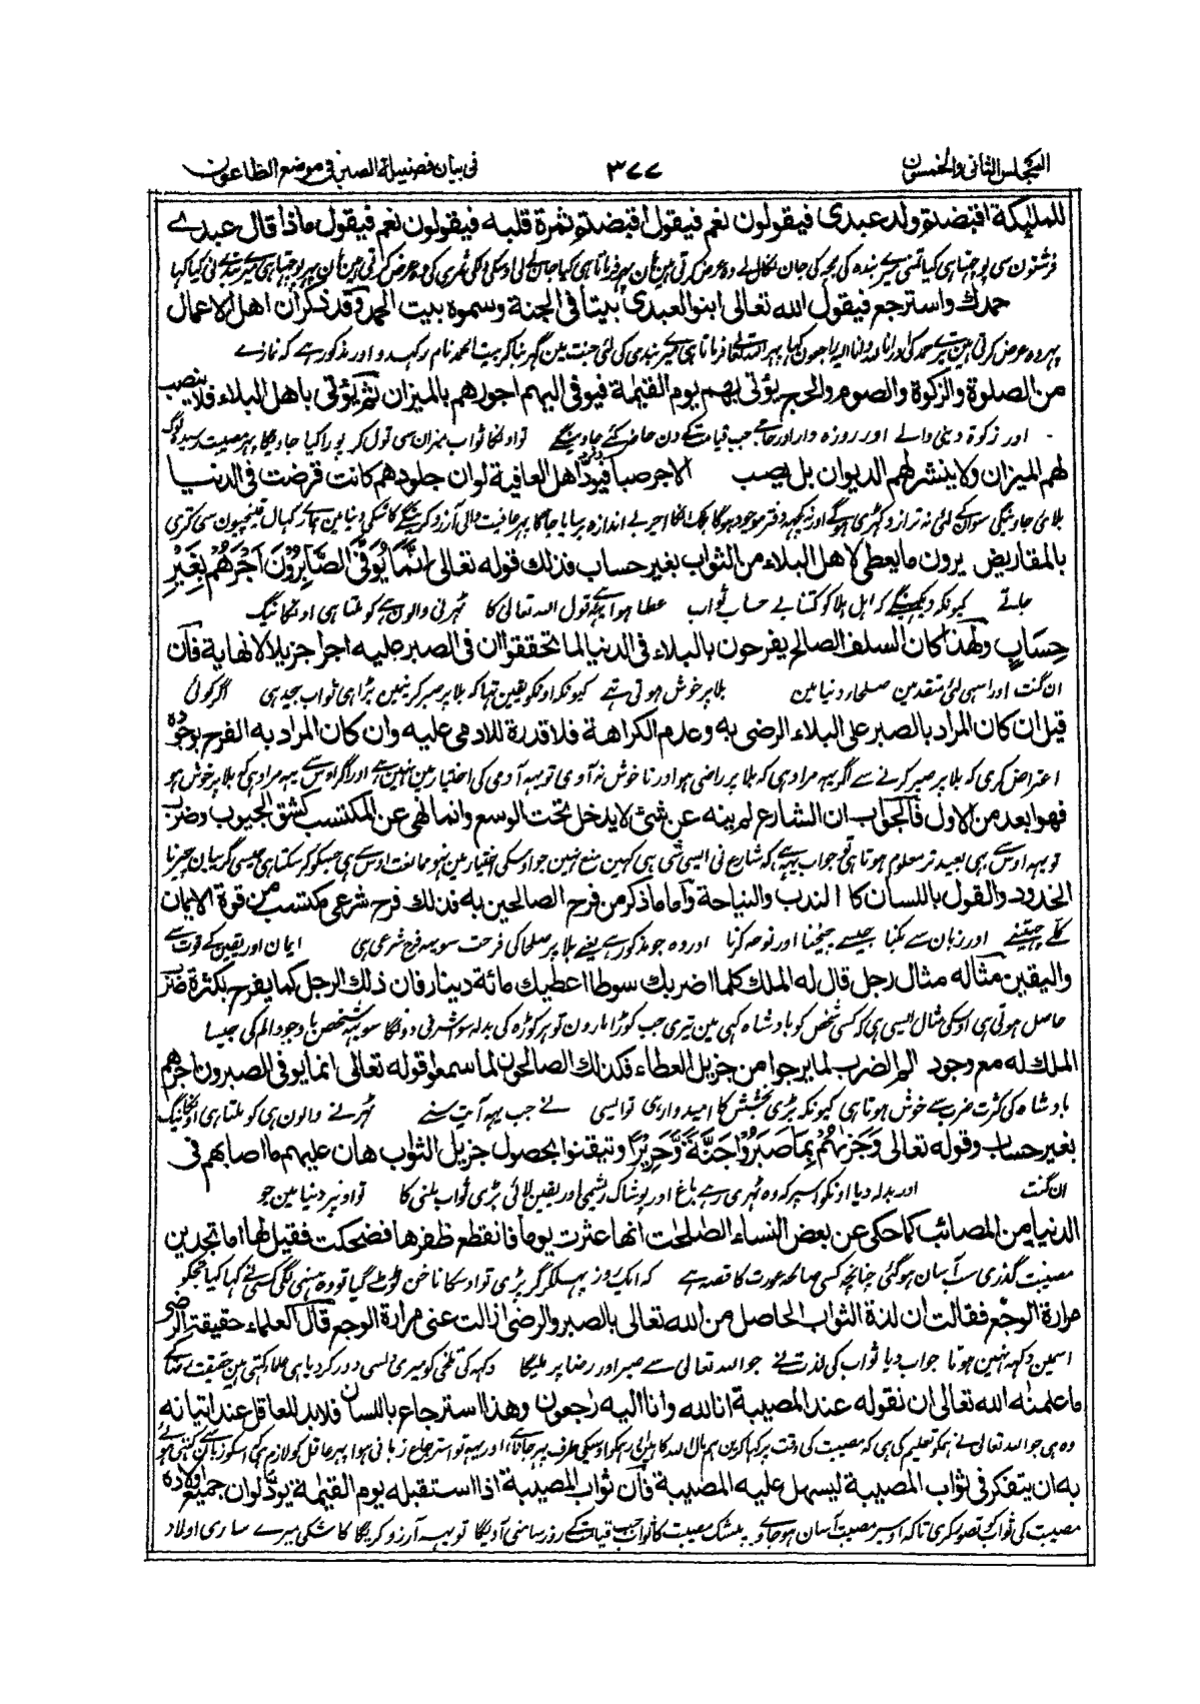 المجلس الثانی والخمسون ٣٧٧ فی بیان فضیلة الصبر فی موضع الطاعون
للملیکة اقبضتم ولد عبدی فیقولون نعم فیقول اقبضتم ثمرة قلبه فیقولون نعم فیقول ماذا قال عبدے
فرشتون سی پوچہتا ہی کیا تمنی میرے بندہ کی بچہ کی جان نکال لے وہ عرض کرتی ہین ہان پہر فرماتا ہی کیا
حمدك واسترجع فیقول الله تعالی ابنوا لعبدی بیتا فی الجنة وسموه بیت الحمد وقد ذکر ان اهل الاعمال
پہر وہ عرض کرتی ہین تیرے حمد کی اور انا لله وانا الیه راجعون کہا پہر الله تعالے فرماتا ہی میرے بندی کی لئی جنت مین گہر بنا کر بیت الحمد نام رکہدو اور مذکور ہے کہ نمازے
من الصلوة والزکوة والصوم والحج یؤتی بهم یوم القیمة فیوفی الیهم اجورهم بالمیزان ثم یؤتی باهل البلاء فلا ینصب
اور زکوة دینی والے اور روزہ دار اور حاجے جب قیامت کے دن حاضر کئے جاوینگے تو اونکا ثواب میزان سی تول کر پورا کیا جاویگا پہر مصیبت رسیدہ لوگ
لهم المیزان ولا ینشر لهم الدیوان بل یصب الاجر صبا فیود اهل العافیة لو ان جلودهم کانت قرضت فی الدنیا
بلائی جاوینگی سو ان کے لئی نہ ترازو کہڑی ہوگے اور نہ کچہہ دفتر موجود ہوگا بلکہ انکا اجر بے اندازہ بہایا جائیگا پہر عافیت والی آرزو کرینگے کاشکی دنیا مین ہمارے کہال قینچیون سی کتری
بالمقاریض یرون ما یعطی لاهل البلاء من الثواب بغیر حساب فذلك قوله تعالی اِنَّمَا یُوَفَّی الصَّابِرُوْنَ اَجْرَهُمْ بِغَیْرِ
جاتے کیونکہ دیکہینگے کہ اہل بلا کو کتنا بے حساب ثواب عطا ہوا ہے یہی قول الله تعالی کا ٹہرنی والون ہے کو ملتا ہی اونکا نیگ
حِسَابٍ ولهذا کان السلف الصالح یفرحون بالبلاء فی الدنیا لما تحققوا ان فی الصبر علیه اجرا جزیلا لا نهایة فان
ان گنت اور اسہی لئی متقدمین صلحاء دنیا مین بلا پر خوش ہوتی تہے کیونکہ اونکو یقین تہا کہ بلا پر صبر کرنیمین بڑا ہی ثواب بیحد ہی اگر کوئی
قیل ان کان المراد بالصبر علی البلاء الرضی به وعدم الکراهة فلا قدرة للادمی علیه وان کان المراد به الفرح بوجوده
اعتراض کری کہ بلا پر صبر کرنے سے اگر یہہ مراد ہی کہ بلا پر راضی ہو اور ناخوش نہ آوی تو یہہ آدمی کی اختیار مین نہین ہے اور اگر اوس سے یہہ مراد ہی کہ بلا پر خوش ہو
فهو ابعد من الاول فالجواب ان الشارع لم ینه عن شئ لا یدخل تحت الوسع وانما نهی عن المکتسب کشق الجیوب وضرب
تو یہہ اوس سے بہی بعید تر معلوم ہوتا ہی تو جواب یہہ ہے کہ شارع نی ایسی شی سی کہین منع نہین جو اوسکی اختیار مین نہو ممانعت اوس سے ہی جسکو کر سکتا ہی جیسی گریبان چیرنا
الخدود والقول باللسان کالندب والنیاحة واما ما ذکر من فرح الصالحین به فذلك فرح شرعی مکتسب من قوة الایمان
کلے پیٹنے اور زبان سے بکنا جیسے چیخنا اور نوحہ کرنا اور وہ جو مذکور ہے یعنے بلا پر صلحا کی فرحت سو یہہ فرح شرعی ہی ایمان اور یقین کے قوت سے
والیقین مثاله مثال رجل قال له الملك کلما اضربك سوطا اعطیك مائة دینار فان ذلك الرجل کما یفرح بکثرة ضرب
حاصل ہوتی ہی اوسکی مثال ایسی ہی کہ کسی شخص کو بادشاہ کہی مین تیری جب کوڑا مارون تو ہر کوڑہ کی بدلہ سو اشرفی دونگا سو یہہ شخص باوجود الم کی جیسا
الملك له مع وجود الم الضرب لما یرجوا من جزیل العطاء فکذلك الصالحون لما سمعوا قوله تعالی انما یوفی الصبرون اجرهم
بادشاہ کی کثرت ضرب سے خوش ہوتا ہی کیونکہ بڑی بخشش کا امیدوار ہی تو ایسی نے جب یہہ آیت سنے ٹہرنے والون ہی کو ملتا ہی اونکا نیگ
بغیر حساب وقوله تعالی وَجَزٰهُمْ بِمَا صَبَرُوْا جَنَّةً وَّحَرِیْرًا وتیقنوا بحصول جزیل الثواب هان علیهم ما اصابهم فی
ان گنت اور بدلہ دیا اونکو اسپر کہ وہ ٹہری رہے باغ اور پوشاک ریشمی اور یقین لائی بڑی ثواب ملنی کا تو اونپر دنیا مین جو
الدنیا من المصائب کما حکی عن بعض النساء الصلحت انها عثرت یوما فانقطع ظفرها فضحکت فقیل لها اما تجدین
مصیبت گذری سب آسان ہو گئی چنانچہ کسی صالحہ عورت کا قصہ ہے کہ ایک روز پہسلکر گر پڑی تو اوسکا ناخن ٹوٹ گیا تو وہ ہنسی لگی کسی نے کہا کیا تجکو
مرارة الوجع فقالت ان لذة الثواب الحاصل من الله تعالی بالصبر والرضی ازالت عنی مرارة الوجع قال العلماء حقیقة الرضی
اسمین دکہہ نہین ہوتا جواب دیا ثواب کی لذت نے جو الله تعالی سے صبر اور رضا پر ملیگا دکہہ کی تلخی کو میری دلسی دور کر دیا ہی علما کہتی ہین حقیقت رضا کے
ما علمنه الله تعالی ان نقوله عند المصیبة انا لله وانا الیه رٰجعون وهذا استرجاع باللسان فلا بد للعاقل عند اتیانه
وہ ہی جو الله تعالی نے ہمکو تعلیم کی ہی کہ مصیبت کی وقت پر کہا کرین ہم مال الله کا ہین اور ہمکو اوسیکی طرف پہر جانا ہے اور یہہ تو استرجاع زبانی ہوا پہر عاقل کو لازم ہی کہ اسکو زبان سے کہتی ہوئے
به ان یتفکر فی ثواب المصیبة لیسهل علیه المصیبة فان ثواب المصیبة اذا استقبله یوم القیمة یود لو ان جمیع اولاده
مصیبت کی ثواب کو تصور کری تاکہ اوسپر مصیبت آسان ہو جاوے بیشک مصیبت کا ثواب جب قیامت کے روز سامنی آویگا تو یہہ آرزو کریگا کاشکی میرے ساری اولاد